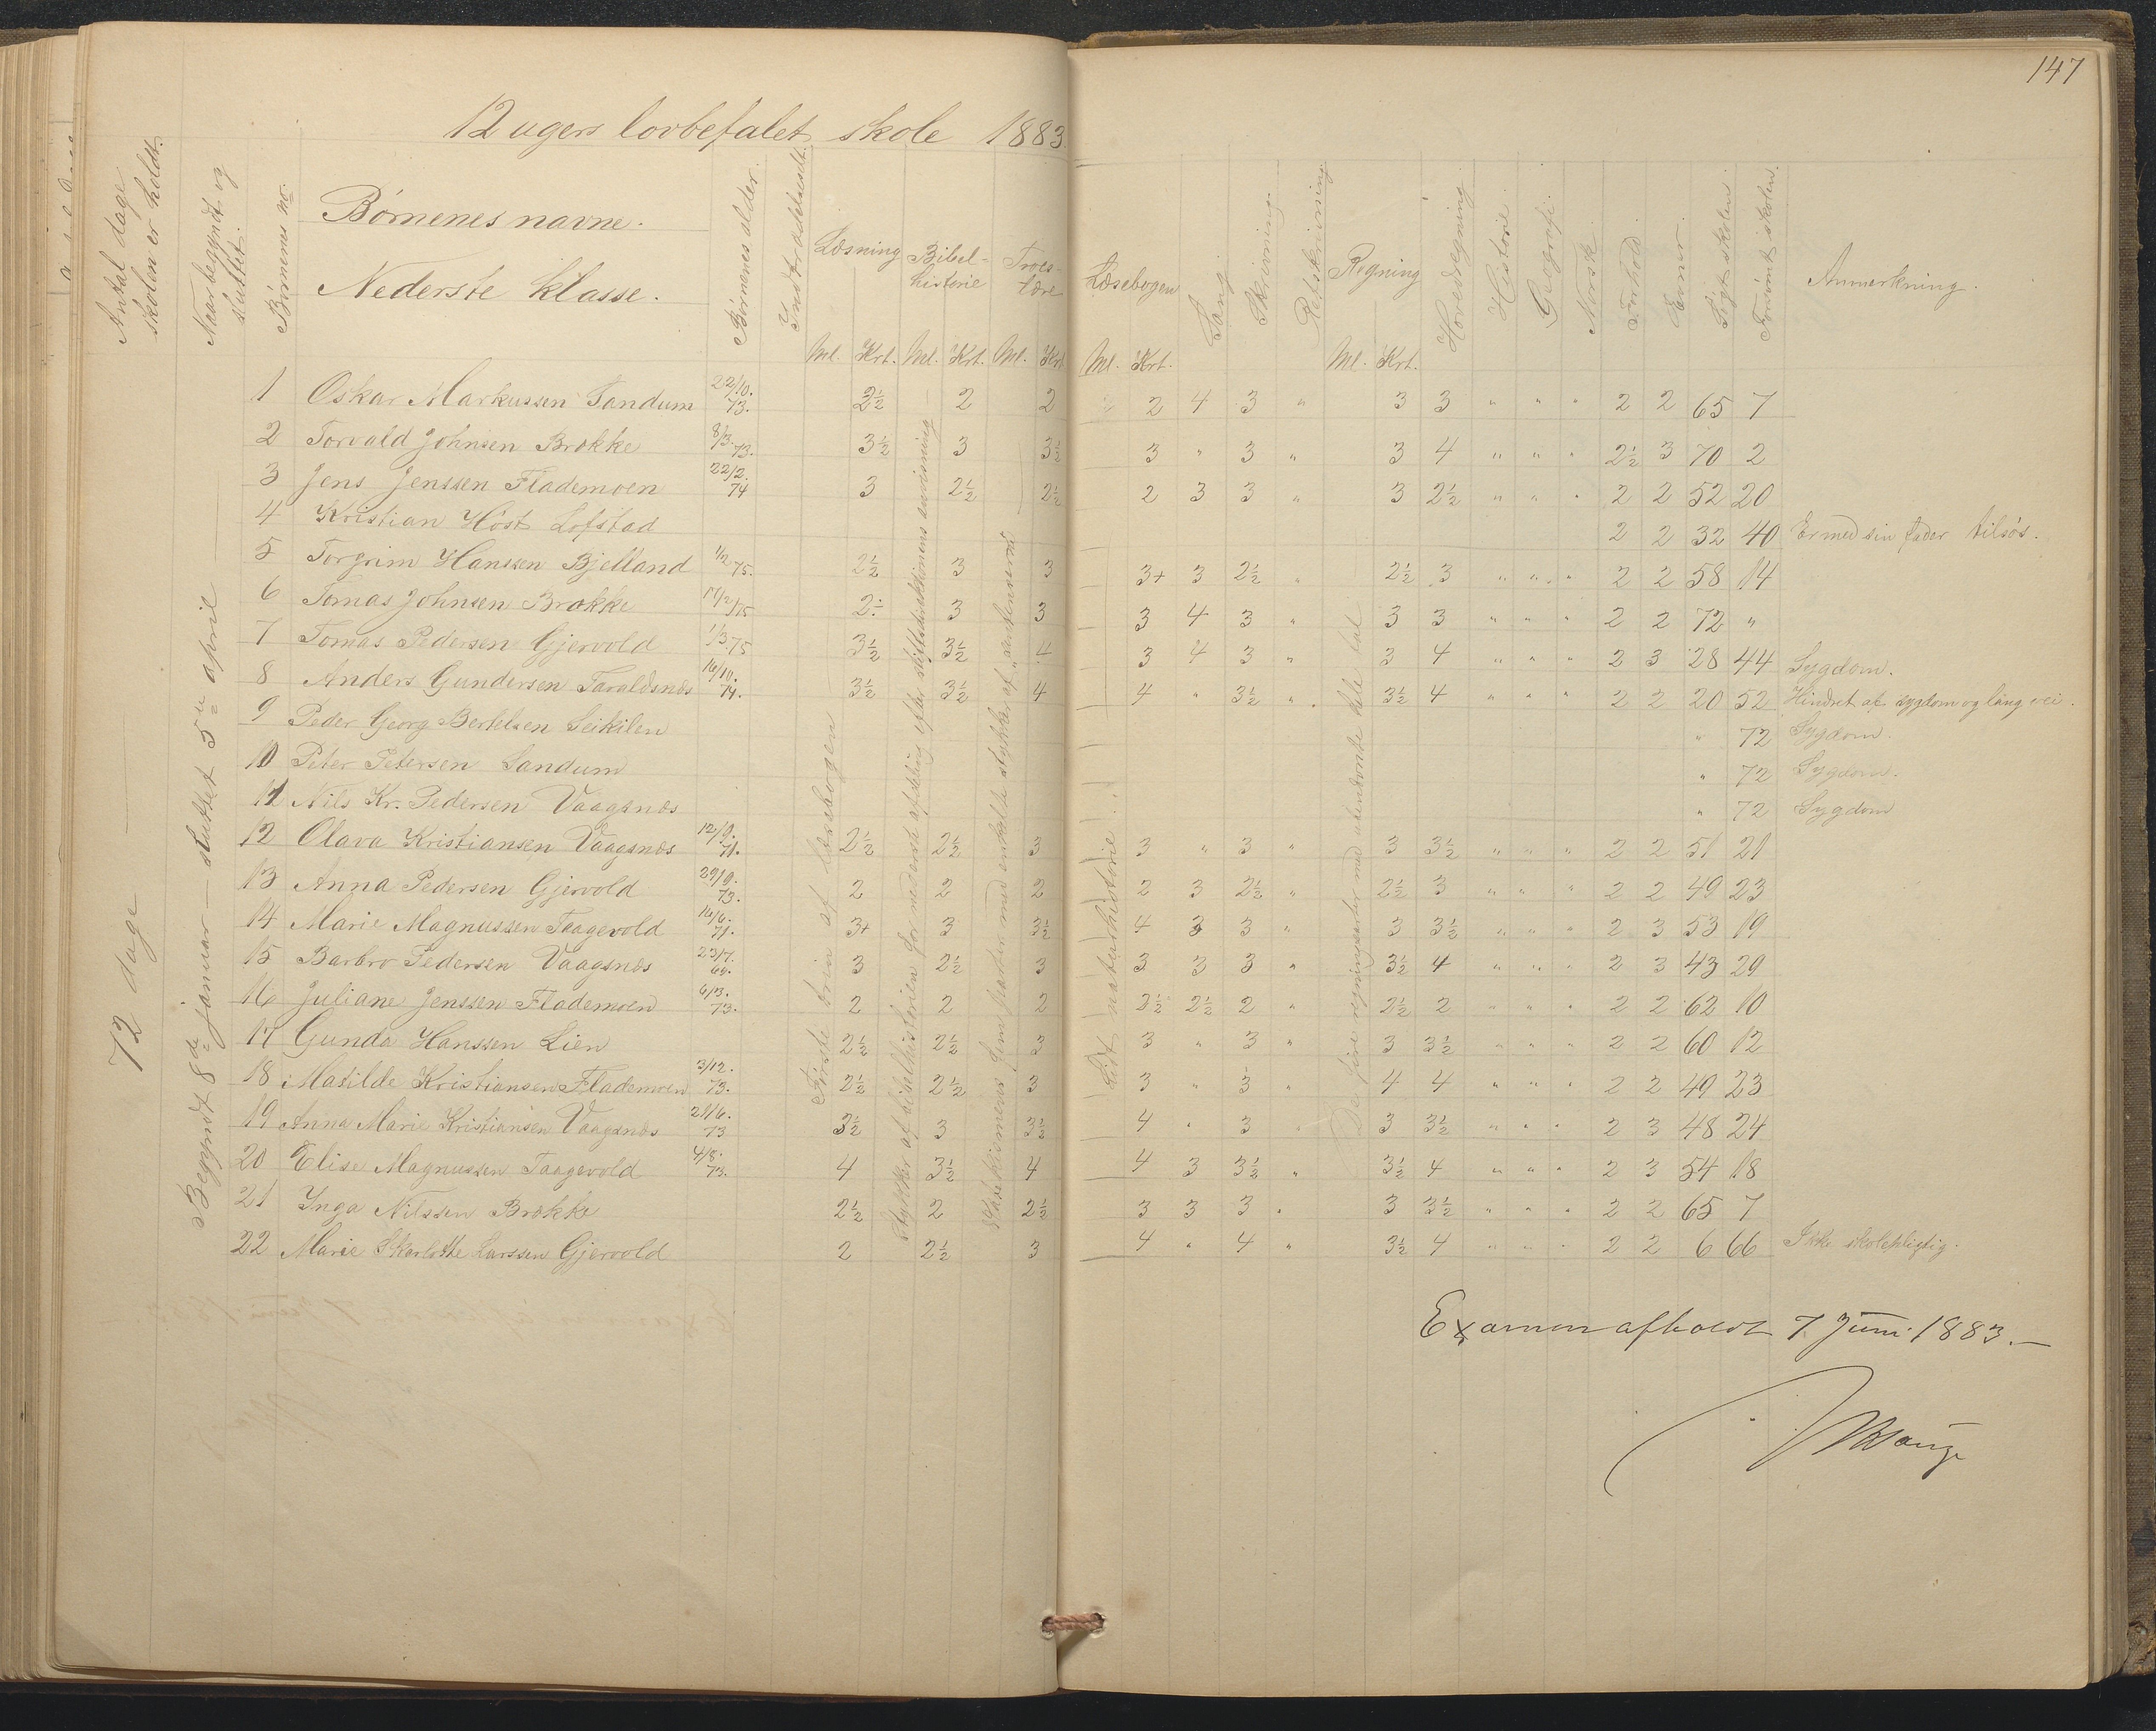 147
12 ugers lovbefalet skole 1883.
Antal dage skolen er holdt.
Naar begyndt og sluttet.
Børnenes no.
Børnenes navne.
Nederste klasse.
Børnenes alder.
Indtrædelsestid.
Læsning Ml. Krt.
Bibelhistorie Ml. Krt.
Troeslære Ml. Krt.
Læsebogen Ml. Krt.
Sang
Skrivning
Retskrivning
Regning Ml. Krt.
Hovedregning
Historie
Geografi
Norsk
Forhold
Evner
Søgt skolen.
Forsømt skolen.
Anmerkning.
72 dage
Begyndt 8de januar — sluttet 5te april
Første trin af læsebogen
Stykker af bibelhistorien for nederste afdeling efter stiftsdirektionens anvisning
Lidt naturhistorie
De fire regningsarter med ubenævnte hele tal
1 Oskar Markussen Sandum 22/10. 73. 2½ 2 2 2 4 3 " 3 3 " " " 2 2 65 7
2 Torvald Johnsen Brokke 8/3. 73. 3½ 3 3½ 3 " 3 " 3 4 " " " 2½ 3 70 2
3 Jens Jenssen Flademoen 22/2. 74 3 2½ 2½ 2 3 3 " 3 2½ " " " 2 2 52 20
4 Kristian Høst Lofstad 2 2 32 40 Er med sin fader tilsøs.
5 Torgrim Hanssen Bjelland 1/2 75. 2½ 3 3 3+ 3 2½ " 2½ 3 " " " 2 2 58 14
6 Tomas Johnsen Brokke 17/2 75 2÷ 3 3 3 4 3 " 3 3 " " " 2 2 72 "
7 Tomas Pedersen Gjervold 1/3 75 3½ 3½ 4 3 4 3 " 3 4 " " " 2 3 28 44 Sygdom.
8 Anders Gundersen Taraldsnæs 16/10. 74. 3½ 3½ 4 4 " 3½ " 3½ 4 " " " 2 2 20 52 Hindret af sygdom og lang vei.
9 Peder Georg Bertelsen Leikilen " 72 Sygdom.
10 Peter Petersen Sandum " 72 Sygdom.
11 Nils Kr. Pedersen Vaagsnæs " 72 Sygdom
12 Olava Kristiansen Vaagsnæs 12/9. 71. 2½ 2½ 3 3 " 3 " 3 3½ " " " 2 2 51 21
13 Anna Pedersen Gjervold 29/10. 73. 2 2 2 2 3 2½ " 2½ 3 " " " 2 2 49 23
14 Marie Magnussen Taagevold 16/6. 71. 3+ 3 3½ 4 3 3 " 3 3½ " " " 2 3 53 19
15 Barbro Pedersen Vaagsnæs 23/7. 69. 3 2½ 3 3 3 3 " 3½ 4 " " " 2 3 43 29
16 Juliane Jenssen Flademoen 6/3. 73. 2 2 2 2½ 2½ 2 " 2½ 2 " " " 2 2 62 10
17 Gunda Hanssen Lien 2½ 2½ 3 3 " 3 " 3 3½ " " " 2 2 60 12
18 Matilde Kristiansen Flademoen 3/12. 73. 2½ 2½ 3 3 " 3 " 4 4 " " " 2 2 49 23
19 Anna Marie Kristiansen Vaagsnæs 21/6. 73 3½ 3 3½ 4 " 3 " 3 3½ " " " 2 3 48 24
20 Elise Magnussen Taagevold 4/8. 73. 4 3½ 4 4 3 3½ " 3½ 4 " " " 2 3 54 18
21 Inga Nilssen Brokke 2½ 2 2½ 3 3 3 " 3 3½ " " " 2 2 65 7
22 Marie Skarlotte Larssen Gjervold 2 2½ 3 4 " 4 " 3½ 4 " " " 2 2 6 66 Ikke skolepligtig.
Examen afholdt 7 Juni 1883.—